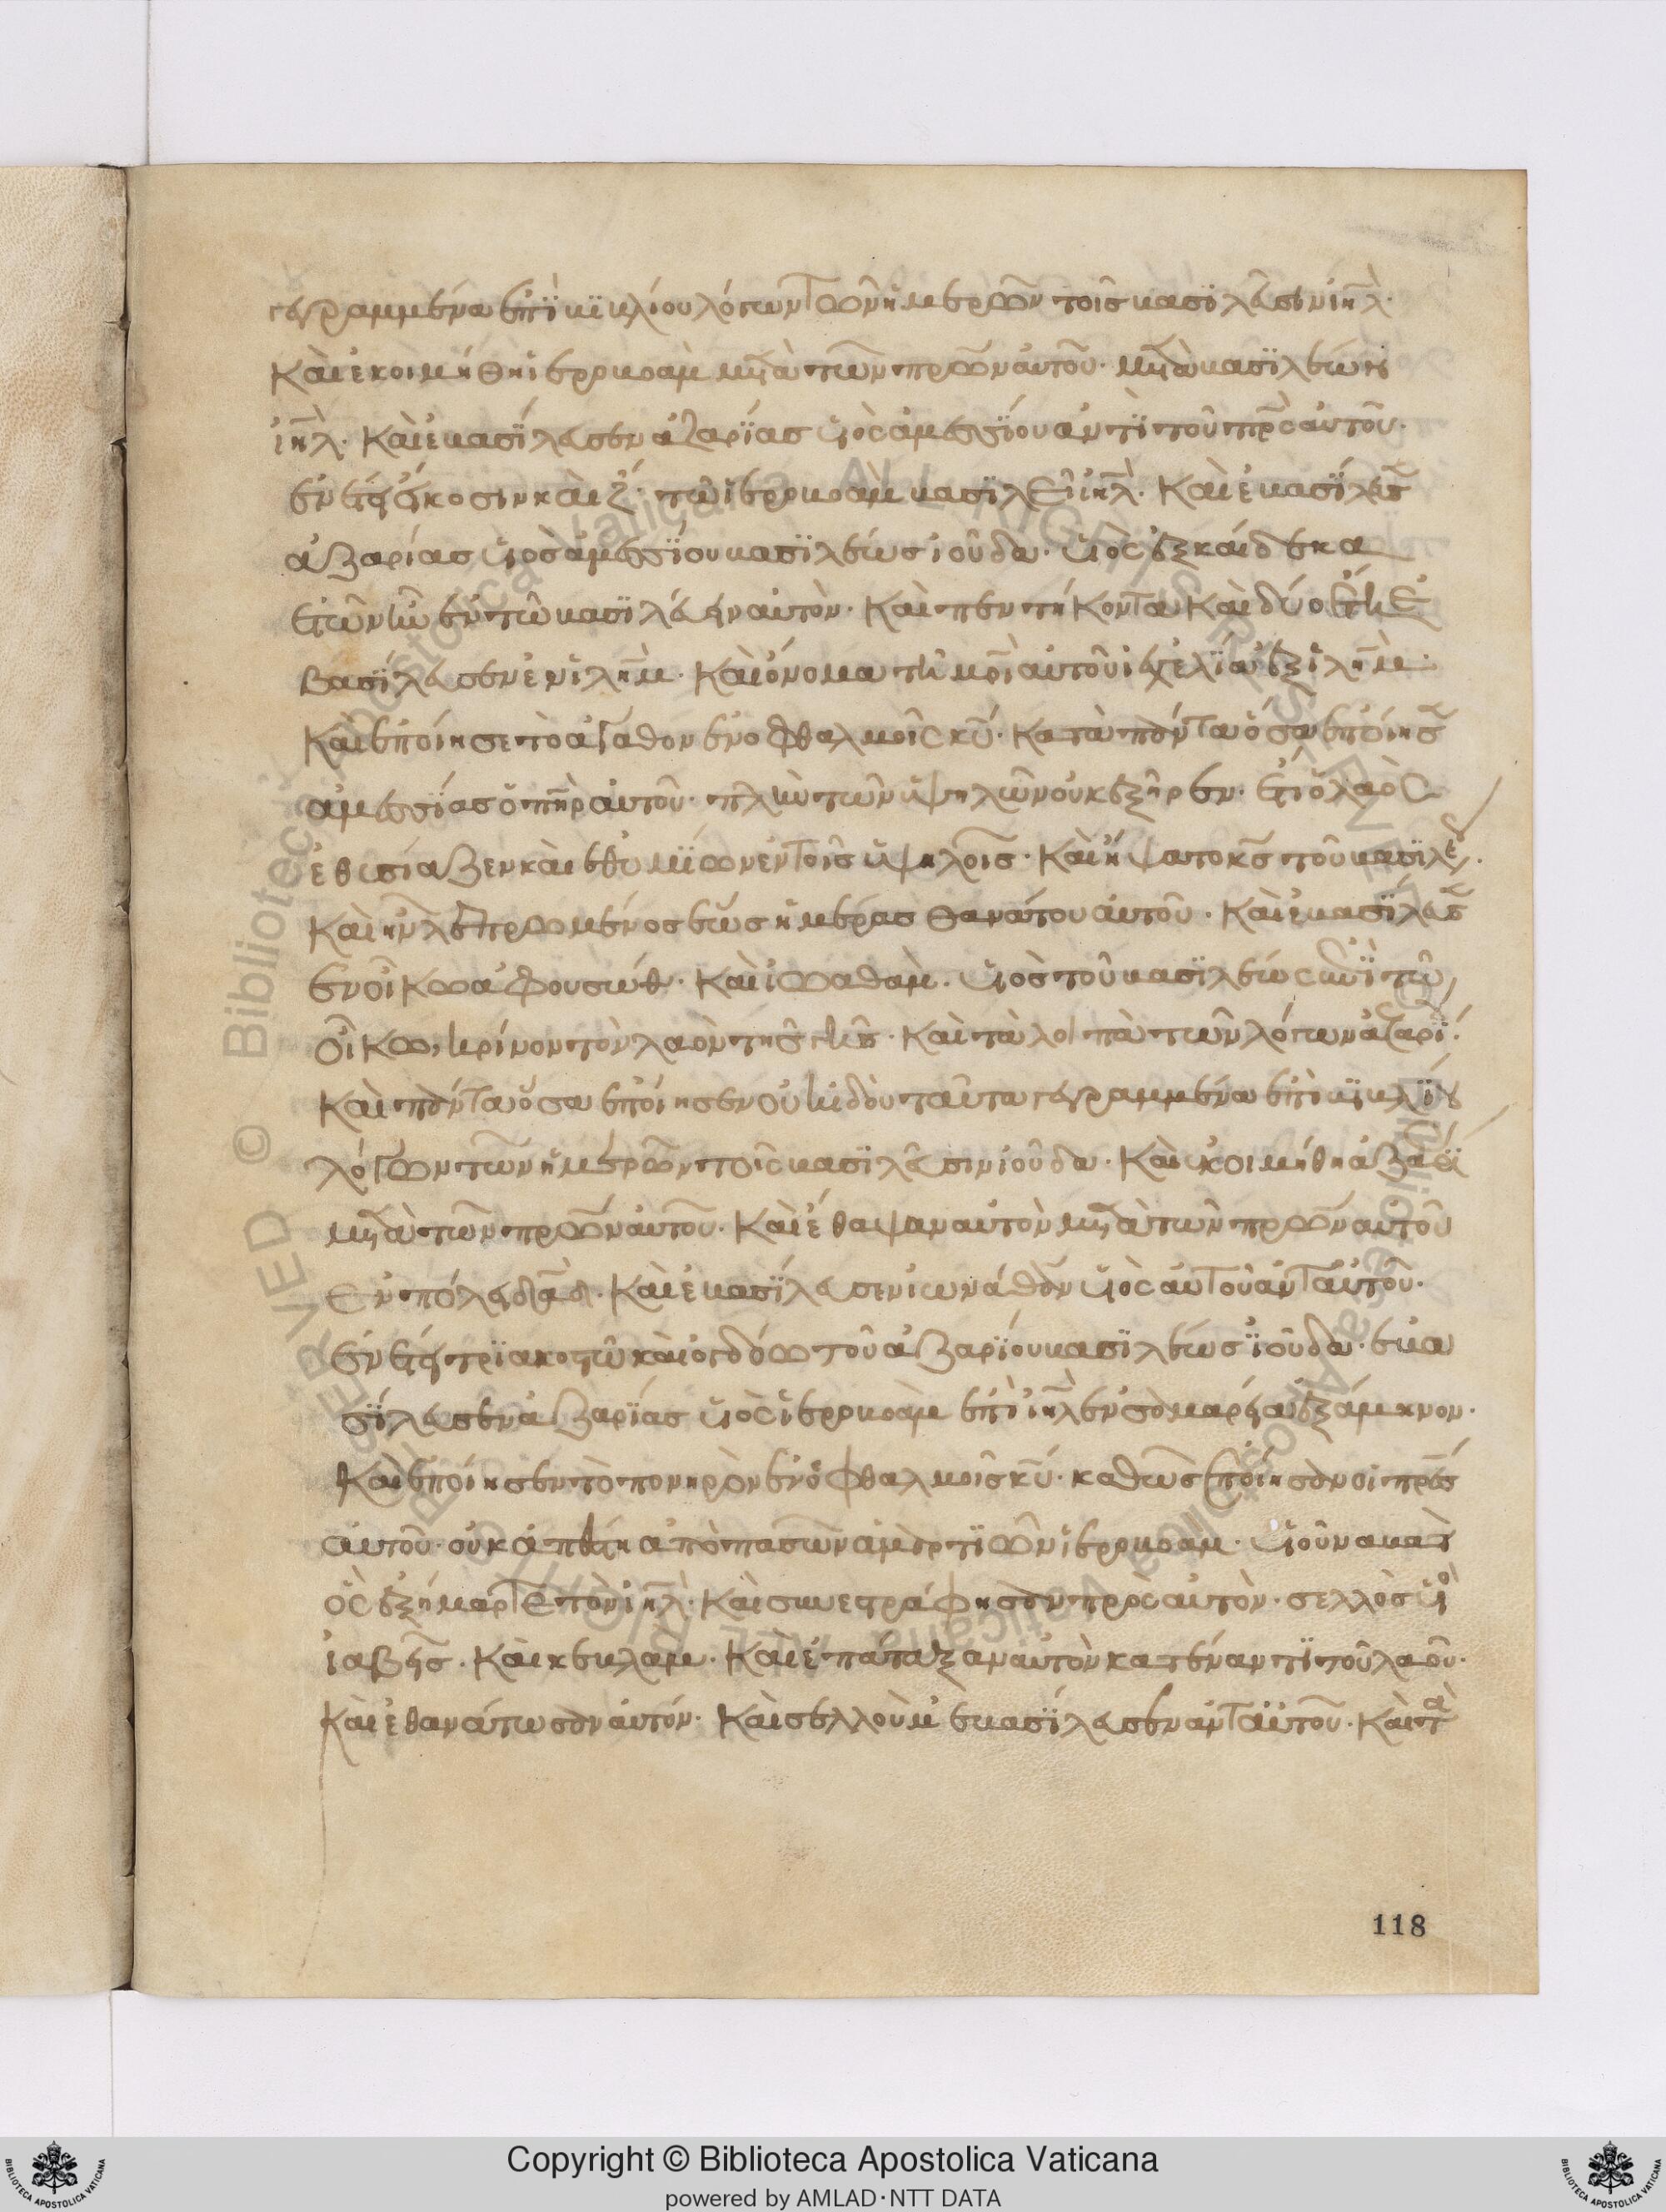 γεγραμμένα ἐπϊ βϊβλίου λόγων τῶν ἡμερῶν τοῖς βασϊλεῦσιν ἰηλ.
Καὶ ἐκοιμήθη ἱεροβοὰμ μετὰ τῶν πρων αὐτοῦ. μετὰ βασϊλέων
ἰηλ. Καὶ ἐβασΐλευσεν ἀζαρΐας υἱὸς ἀμεσσΐου ἀντὶ τοῦ πρς αὐτοῦ.
ἐν ἔτει εἰκοσιν καὶ ζ. τῶ ἱεροβοὰμ βασϊλεῖ ἰηλ. Καὶ ἐβασΐλευσ
ἀζαρίας υἱὸσ ἀμεσσΐου βασϊλέωσ ἰοῦδα. υἱὸς ἑξκαίδεκα
ἐτῶν ἦν ἐν τῶ βασϊλεύειν αὐτὸν. Καὶ πεντήκοντα καὶ δύο ἔτη ἐ
βασΐλευσεν ἐν ϊλημ. Καὶ ὄνομα τῆ μρι αὐτοῦ ἰεχελΐα ἐξ ϊλημ.
Καὶ ἐποίησε τὸ ἀγαθὸν ἐν ὀφθαλμοῖς κυ. κατὰ πάντα ὅσα ἐποίησ
ἀμεσσΐασ ὁ πηρ αὐτοῦ. πλὴν τῶν ὑψηλῶν οὐκ ἐξῆρεν. ἔτι ὁ λαὸς
ἐθυσίαζεν καὶ ἐθυμΐων ἐν τοῖς ὑψηλοῖς. Καὶ ἥψατο κς τοῦ βασϊλέ.
Καὶ ἦν λεπρωμένος ἕως ἡμέρας θανάτου αὐτοῦ. Καὶ ἐβασΐλευσ
ἐν οἴκω ἀφφουσώθ. Καὶ ἰωαθαμ. υἱὸς τοῦ βασϊλέως ἐπὶ τῶ
οἴκω, κρίνον τὸν λαὸν τῆς γῆς. Καὶ τὰ λοιπὰ τῶν λόγων ἀζαρϊ.
Καὶ πάντα ὅσα ἐποίησεν οὐκ ἰδοὺ ταῦτα γεγραμμένα ἐπὶ βϊβλΐου
λόγων τῶν ἡμερῶν τοῖς βασϊλεῦσιν ἰοῦδα. Καὶ ἐκοιμήθη ἀζαρϊ
μετὰ τῶν πρων αὐτοῦ. Καὶ ἔθαψαν αὐτὸν μετὰ τῶν πρων αὐτοῦ
ἐν πόλει δαδ. Καὶ ἐβασΐλευσεν ἰωνάθαν υἱὸς αὐτοῦ ἀντ αὐτοῦ.
ἐν ἔτει τρϊακοστῶ καὶ ὀγδόω τοῦ ἀζαρΐου βασϊλέωσ ἰοῦδα. ἐβα
σΐλευσεν ἀζαρΐας υἱὸς ἱεροβοὰμ ἐπὶ ἰηλ ἐν σαμαρεία ἑξάμηνον.
Καὶ ἐποίησεν τὸ πονηρὸν ἐν ὀφθαλμοῖς κυ. καθὼς ἐποίησαν οἱ πρες
αὐτοῦ. οὐκ ἀπέστη ἀπὸ πασῶν ἁμαρτϊῶν ἱεροβοὰμ. υἱοῦ ναβατ
ὃς ἐξήμαρτε τὸν ἰηλ. Καὶ συνεστράφησαν πρὸς αὐτὸν. σελλοὺς υἱο
ἰαβεὶς. Καὶ κεβλαὰμ. Καὶ ἐπάταξαν αὐτὸν κατέναντϊ τοῦ λαοῦ.
Καὶ ἐθανάτωσαν αὐτόν. Καὶ σελλοὺμ ἐβασΐλευσεν ἀντ αὐτοῦ. Καὶ τὰ
118
Copyright © Biblioteca Apostolica Vaticana
powered by AMLAD·NTT DATA